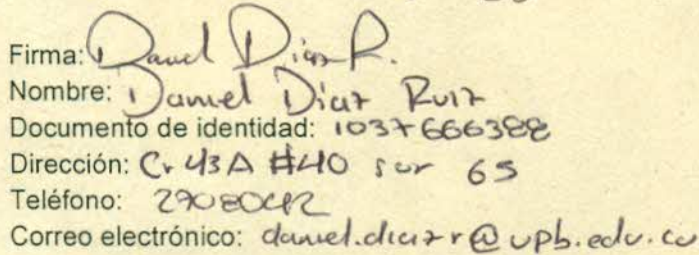 Firma: Daniel Díaz R.
Nombre: Daniel Díaz Ruiz
Documento de identidad: 1037666388
Dirección: Cr 43A #40 sur 65
Teléfono:
Correo electrónico: daniel.diazr@upb.edu.co